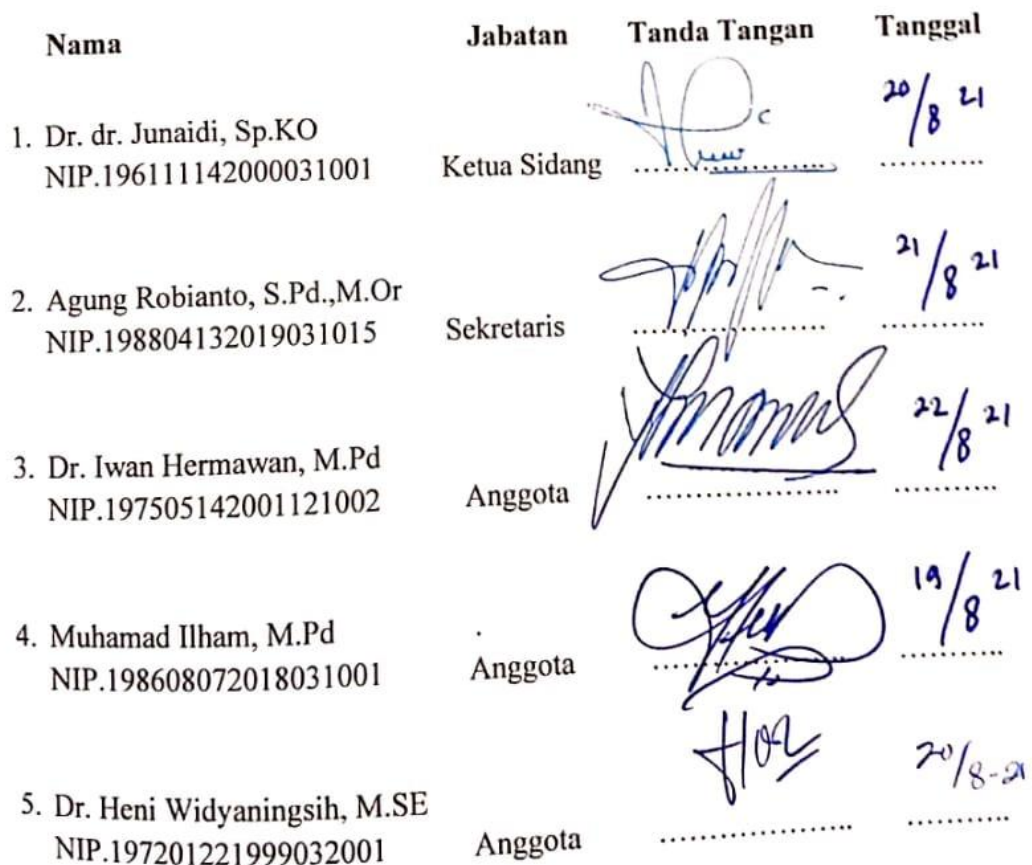 Nama Jabatan Tanda Tangan Tanggal
1. Dr. dr. Junaidi, Sp.KO 20/8 21
NIP.196111142000031001 Ketua Sidang
2. Agung Robianto, S.Pd.,M.Or 21/8 21
NIP.198804132019031015 Sekretaris
3. Dr. Iwan Hermawan, M.Pd 22/8 21
NIP.197505142001121002 Anggota
4. Muhamad Ilham, M.Pd 19/8 21
NIP.198608072018031001 Anggota
5. Dr. Heni Widyaningsih, M.SE 20/8-21
NIP.197201221999032001 Anggota